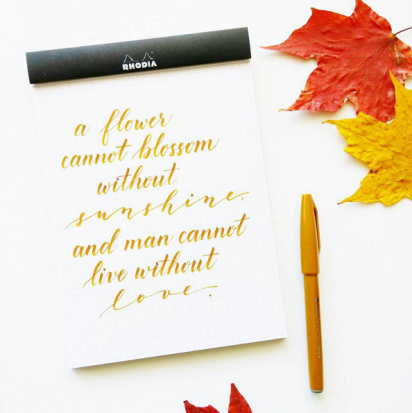 RHODIA
a flower
cannot blossom
without
sunshine,
and man cannot
live without
love.